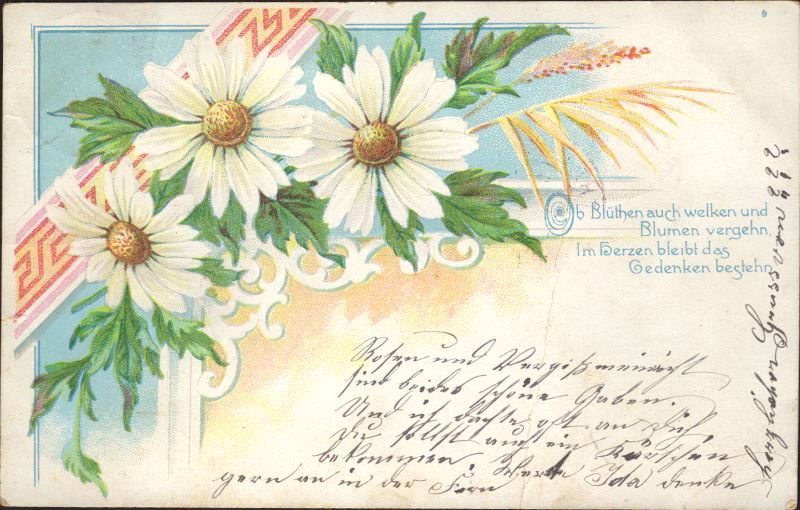 9
Ob Blüthen auch welken und
Blumen vergehn,
Im Herzen bleibt das
Gedenken bestehn.
Rosen und Vergißmeinnicht
sind beides schöne Gaben.
Und ich dachte oft an Dich
Du sollst auch ein Kärtchen
bekommen. Werte Ida denke
gern an in der Fern